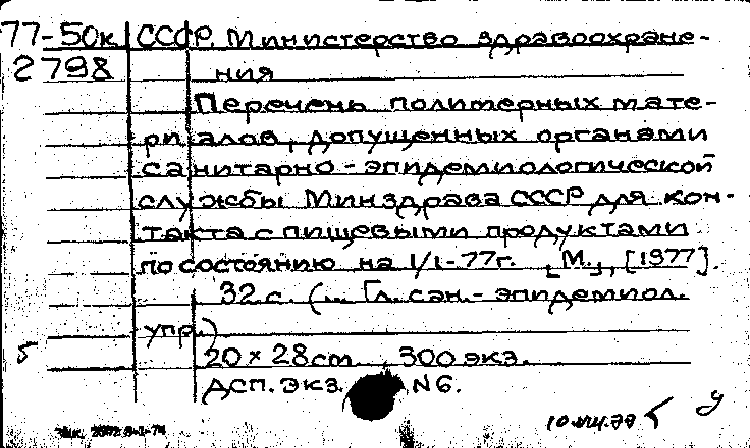 77-50к СССР. Министерство здравоохране-
2798 ния
Перечень полимерных мате-
риалов, допущенных органами
санитарно-эпидемиологической
службы Минздрава СССР для кон-
такта с пищевыми продуктами
по состоянию на 1/I-77г. [М.], [1977].
32 с. (... Гл. сан.-эпидемиол.
упр.)
5 20 × 28 cm 300 экз.
ДСП. экз. N6.
у